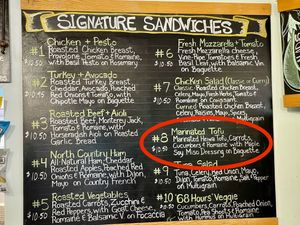 SIGNATURE SANDWICHES
#1 Chicken + Pesto
$10.50
Roasted Chicken Breast,
Provolone, Tomato & Romaine,
with Basil Pesto on Rosemary
#2 Turkey + Avocado
Roast Turkey Breast,
Cheddar, Avocado, Herbed
Red Onion & Tomato with
Chipotle Mayo on Baguette
Roast Beef + Aioli
Roast Beef, Monterey Jack,
Tomato & Romaine, with
Horseradish Aioli on Roasted
Garlic Bread
#4 North Country Ham
$10.50
All Natural Ham, Cheddar,
Roasted Apples, Herbed Red
Onions & Romaine, with Dijon
Mayo on Country French
#5 Roasted Vegetables
Roasted Carrots, Zucchini &
Red Peppers, with Goat Cheese,
Romaine & Balsamic V. on Focaccia
#6 Fresh Mozzarella + Tomato
$10.50
Fresh Mozzarella Cheese,
Vine-Ripe Tomatoes & Fresh
Basil with
on Baguette
#7 Chicken Salad (Classic or Curry)
$10.50
Classic: Roasted Chicken Breast,
Celery, Mayo, Fresh Herbs, Tomato &
Romaine on Croissant
Curried: Roasted Chicken Breast,
on Multigrain
#8 Marinated Tofu
$10.50
Marinated Tofu, Carrots,
Cucumbers & Romaine with Maple
Soy Miso Dressing on Baguette
#9 Tuna Salad
Tuna, Celery, Red Onion, Mayo,
Dijon, Tomato, Romaine, Salt + Pepper
on Multigrain
#10 68 Hours Veggie
$10.50
Cucumbers, Carrots, Red Onion,
Tomato, Pea Shoots + Hummus
on Multigrain